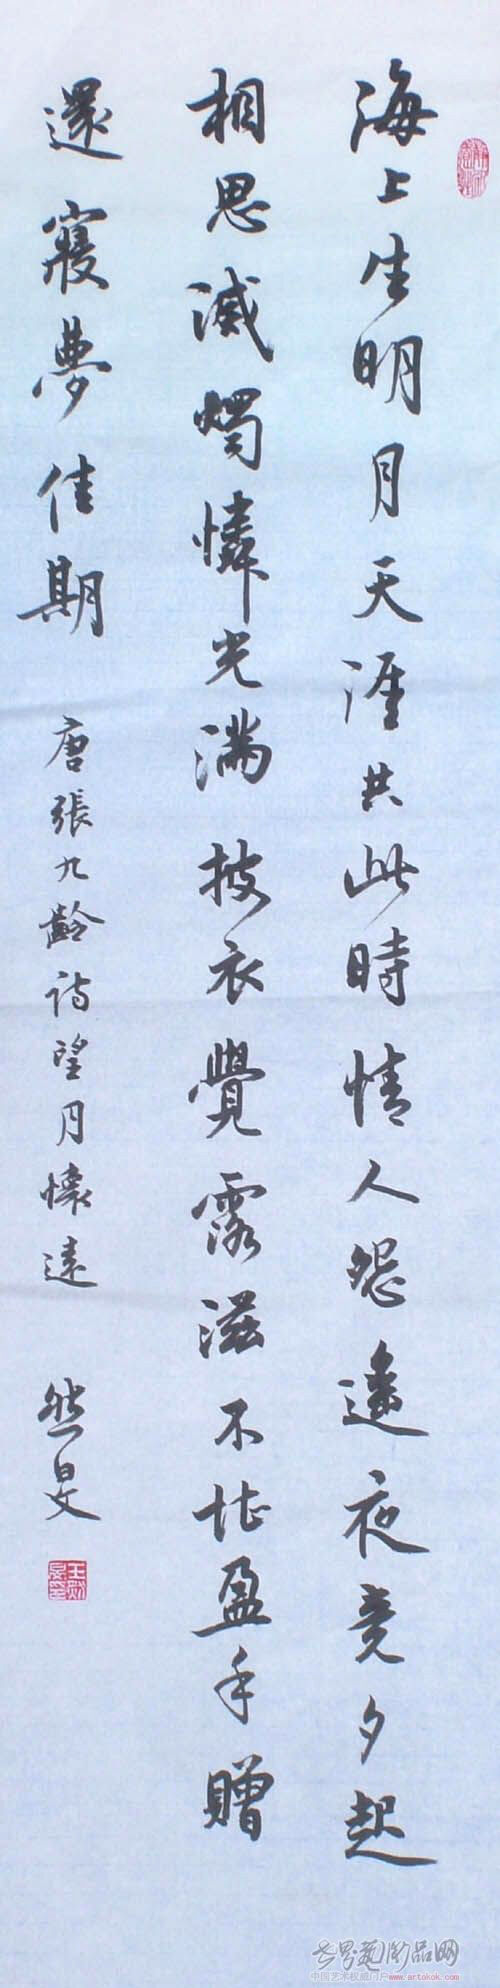 海上生明月天涯共此時情人怨遙夜竟夕起
相思滅燭憐光滿披衣覺露滋不堪盈手贈
還寢夢佳期
唐張九齡詩望月懷遠
然旻
世界艺术品网
中国艺术权威门户www.artokok.com